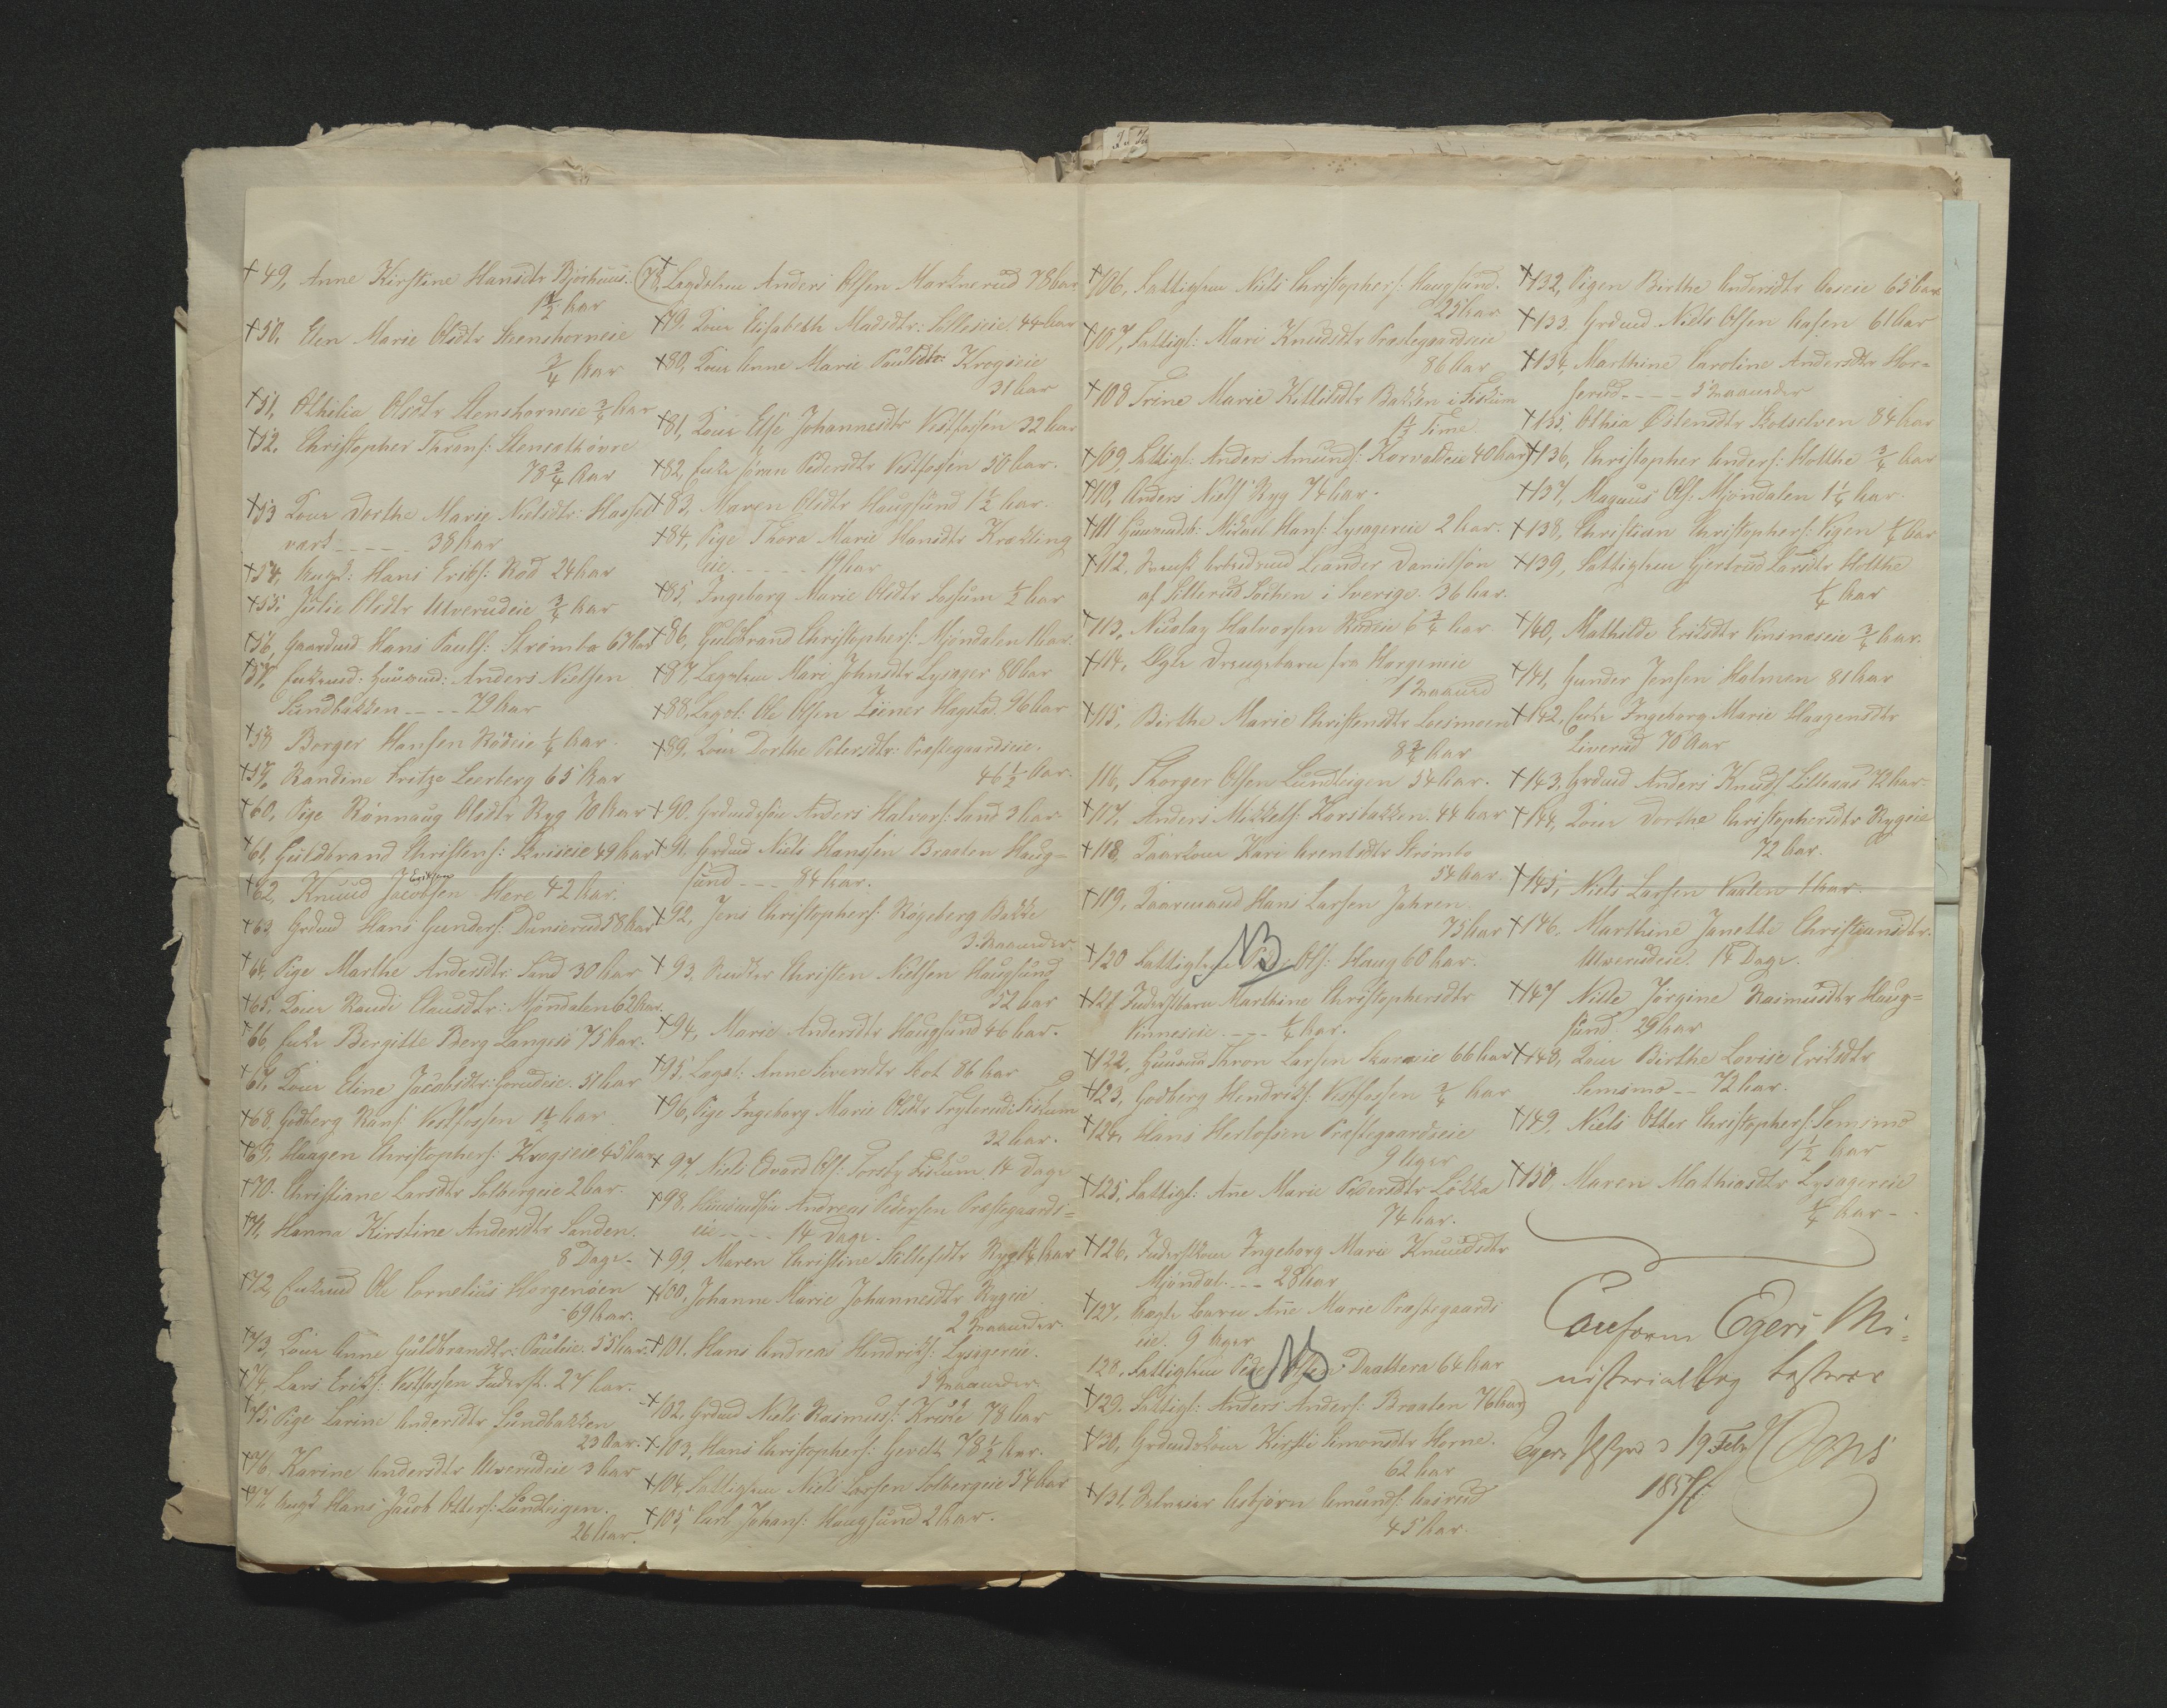 † 49, Anne Kirstine Hansdtr Bjørhuus:
1½ Aar
† 50, Elen Marie Olsdtr Steenshorneie
¾ Aar
† 51, Othilia Olsdtr Stenshorneie ¾ Aar
† 52, Christopher Throns:
78¾ Aar
† 53 Kone Dorthe Marie Nielsdtr: Hassel
vark ---- 38 Aar
† 54, Ungk: Hans Eriks: Rød 24 Aar
† 55, Julie Olsdtr Ulverudeie ¾ Aar
† 56, Gaardmd Hans Pauls: Strømbo 67 Aar
† 57, Enkemd: Huusmd: Anders Nielsen
Sundbakken --- 79 Aar
† 58 Borger Hansen Rødeie ¼ Aar.
† 59, Randine Fritze Leerberg 65 Aar
† 60, Pige Rønnaug Olsdtr Ryg 70 Aar
† 61, Guldbrand Christens: 49 Aar
Eriksen
† 62, Knuud Jacobsen Hore 42 Aar.
† 63 Grdmd Hans Gunders: Dunserud 58 Aar
† 64, Pige Marthe Andersdtr Sand 30 Aar
† 65, Kone Randi Clausdtr: Mjøndalen 62 Aar.
† 66, Enke Bergitte Berg Langesø 75 Aar.
† 67, Kone Eline Jacobsdtr: 51 Aar
† 68, Godberg Hans: Vestfossen 1½ Aar
† 69, Haagen Christophers: Krogseie 45 Aar
† 70. Christiane Larsdtr Solbergeie 2 Aar.
† 71, Hanna Kirstine Andersdtr Sanden.
8 Dage.
† 72, Enkemd Ole Cornelius Horgenøen
69 Aar.
† 73, Kone Anne Guldbrandsdtr: 55 Aar.
† 74, Lars Eriks: Vestfossen Inderst. 27 Aar.
† 75, Pige Karine Andersdtr Sundbakken
23 Aar.
† 76, Karine Andersdtr Ulverudeie 3 Aar
† 77 Ungk Hans Jacob Otters: Lundteigen.
26 Aar.
† 78, Lægdslem Anders Olsen Markerud 78 Aar
† 79, Kone Elisabeth Madsdtr: 44 Aar
† 80, Kone Anne Marie Paulsdtr: Krogseie
31 Aar
† 81, Kone Else Johannesdtr Vestfossen 32 Aar
† 82, Enke Søren Pedersdtr Vestfossen 50 Aar.
† 83, Maren Olsdtr Haugsund 1½ Aar.
† 84, Pige Thora Marie Hansdtr Krækling
eie ---- 19 Aar
† 85, Ingeborg Marie Olsdtr Fossum ½ Aar
† 86, Guldbrand Christophers: Mjøndalen 1 Aar.
† 87, Lægslem Mari Johnsdtr Lysager 80 Aar
† 88, Lægsl: Ole Olsen Hagstad. 96 Aar
† 89, Kone Dorthe Petersdtr: Præstegaardseie.
46½ Aar.
† 90. Grdmdssøn Anders Halvors: Sand 3 Aar.
† 91, Grdmd Niels Hanssen Braaten Haug=
sund --- 84 Aar.
† 92, Jens Christophers: Røgeberg Bakke
3. Maaneder.
† 93, Christen Nielsen Haugsund
52 Aar
† 94, Marie Andersdtr Haugsund 46 Aar.
† 95, Lægsl: Anne Iversdtr 86 Aar
† 96, Pige Ingeborg Marie Olsdtr Fryterud i Fiskum
32 Aar.
† 97, Niels Edvard Ols: Torsby Fiskum 14 Dage
† 98, Huusmdssøn Andreas Pedersen Præstegaards=
eie ---- 14 Dage.
† 99, Maren Christine Ryg ¼ Aar
† 100, Johanne Marie Johannesdtr Rygeie
2 Maaneder.
† 101. Hans Andreas Hendriks: Lysagereie.
5 Maaneder
† 102, Grdmd Niels Rasmuss: Krøke 78 Aar
† 103, Hans Christophers: Gevelt 78½ Aar.
† 104, Sattiglem Niels Larsen Solbergeie 54 Aar
† 105, Carl Johans: Haugsund 2 Aar.
† 106, Fattiglem Niels Christophers: Haugsund.
25 Aar
† 107, Fattigl: Mari Knudsdtr Præstegaardseie
86 Aar
† 108 Trine Marie Kittilsdtr Bakken i Fiskum
1½ Time.
† 109, Fattigl: Anders Amunds: Korvaldeie 40 Aar)
† 110, Anders Niels: Ryg 74 Aar.
† 111 Huusmdb: Mikael Hans: Lysagereie 2 Aar.
† 112, Leander Danielsøn
af Sillerud Sochen i Sverige. 36 Aar.
† 113, Nicolay Halvorsen Rødeie 6¾ Aar
† 114. Drengebarn fra Horgeneie
1 Maaned
† 115, Birthe Marie Christensdtr Loesmoen
8¾ Aar
116, Thorger Olsen Lundteigen 54 Aar.
† 117, Anders Mikkels: Korsbakken 44 Aar
† 118, Kaarkone Kari Arentsdtr Strømbo
54 Aar.
† 119, Kaarmand Hans Larsen Jahren.
75 Aar
† 120 Fattiglem Ols: Haug 60 Aar.
NB
† 121 Inderstbarn Marthine Christophersdtr
Vinneseie ---- ¼ Aar.
† 122, Huusmd Thron Larsen Skaraeie 66 Aar
† 123, Godberg Hendriks: Vestfossen ¾ Aar
† 124, Hans Herlofsen Præstegaardseie
9 Uger
† 125, Fattigl: Ane Marie Pedersdtr Løkka
74 Aar.
† 126, Inderstkone Ingeborg Marie Knuudsdtr
Mjøndal. --- 28 Aar
† 127, Uægte Barn Ane Marie Præstegaards
eie. 9 Uger
NB
128. Fattiglem Peder Olsen Daaltera 64 Aar
† 129, Fattigl: Anders Anders: Braaten 76 Aar)
† 130, Grdmdskone Kirsti Simonsdtr Horne.
62 Aar
† 131, Selveier Asbjørn Amunds: Aasrud
45 Aar.
† 132, Pigen Birthe Andersdtr Aaseie 65 Aar
† 133. Grdmd Niels Olsen Aasen 61 Aar
† 134, Marthine Caroline Andersdtr Hor=
serud ---- 5 Maaneder
† 135, Othea Østensdtr Skotselven 84 Aar
† 136, Christopher Anders: Holthe ¾ Aar
† 137, Magnus Ols: Mjøndalen 1¼ Aar.
† 138, Christian Christophers: Vigen ¼ Aar
† 139, Fattiglem Gjertrud Larsdtr Holthe
¼ Aar
† 140, Mathilde Eriksdtr Vinsnæseie ¾ Aar.
† 141, Gunder Jensen Holmen 81 Aar
† 142, Enke Ingeborg Marie Haagensdtr
Liverud 70 Aar
† 143, Grdmd Anders Knuds: Lilleaas 72 Aar.
† 144, Kone Dorthe Christophersdtr Rygeie
72 Aar.
† 145, Niels Larsen Aar.
† 146. Marthine Janette Christiansdtr.
Ulverudeie. 14 Dage.
† 147 Nille Jørgine Rasmusdtr Haug=
sund. 29 Aar
† 148, Kone Birthe Lovise Eriksdtr
Semsmo -- 72 Aar.
† 149, Niels Otter Christophers: Semsmo
1½ Aar
† 150, Maren Mathiasdtr Lysagereie
¼ Aar -
Conform Egers Mi=
nisterialbog
Egers Pstgrd d 19 Febr
1857.